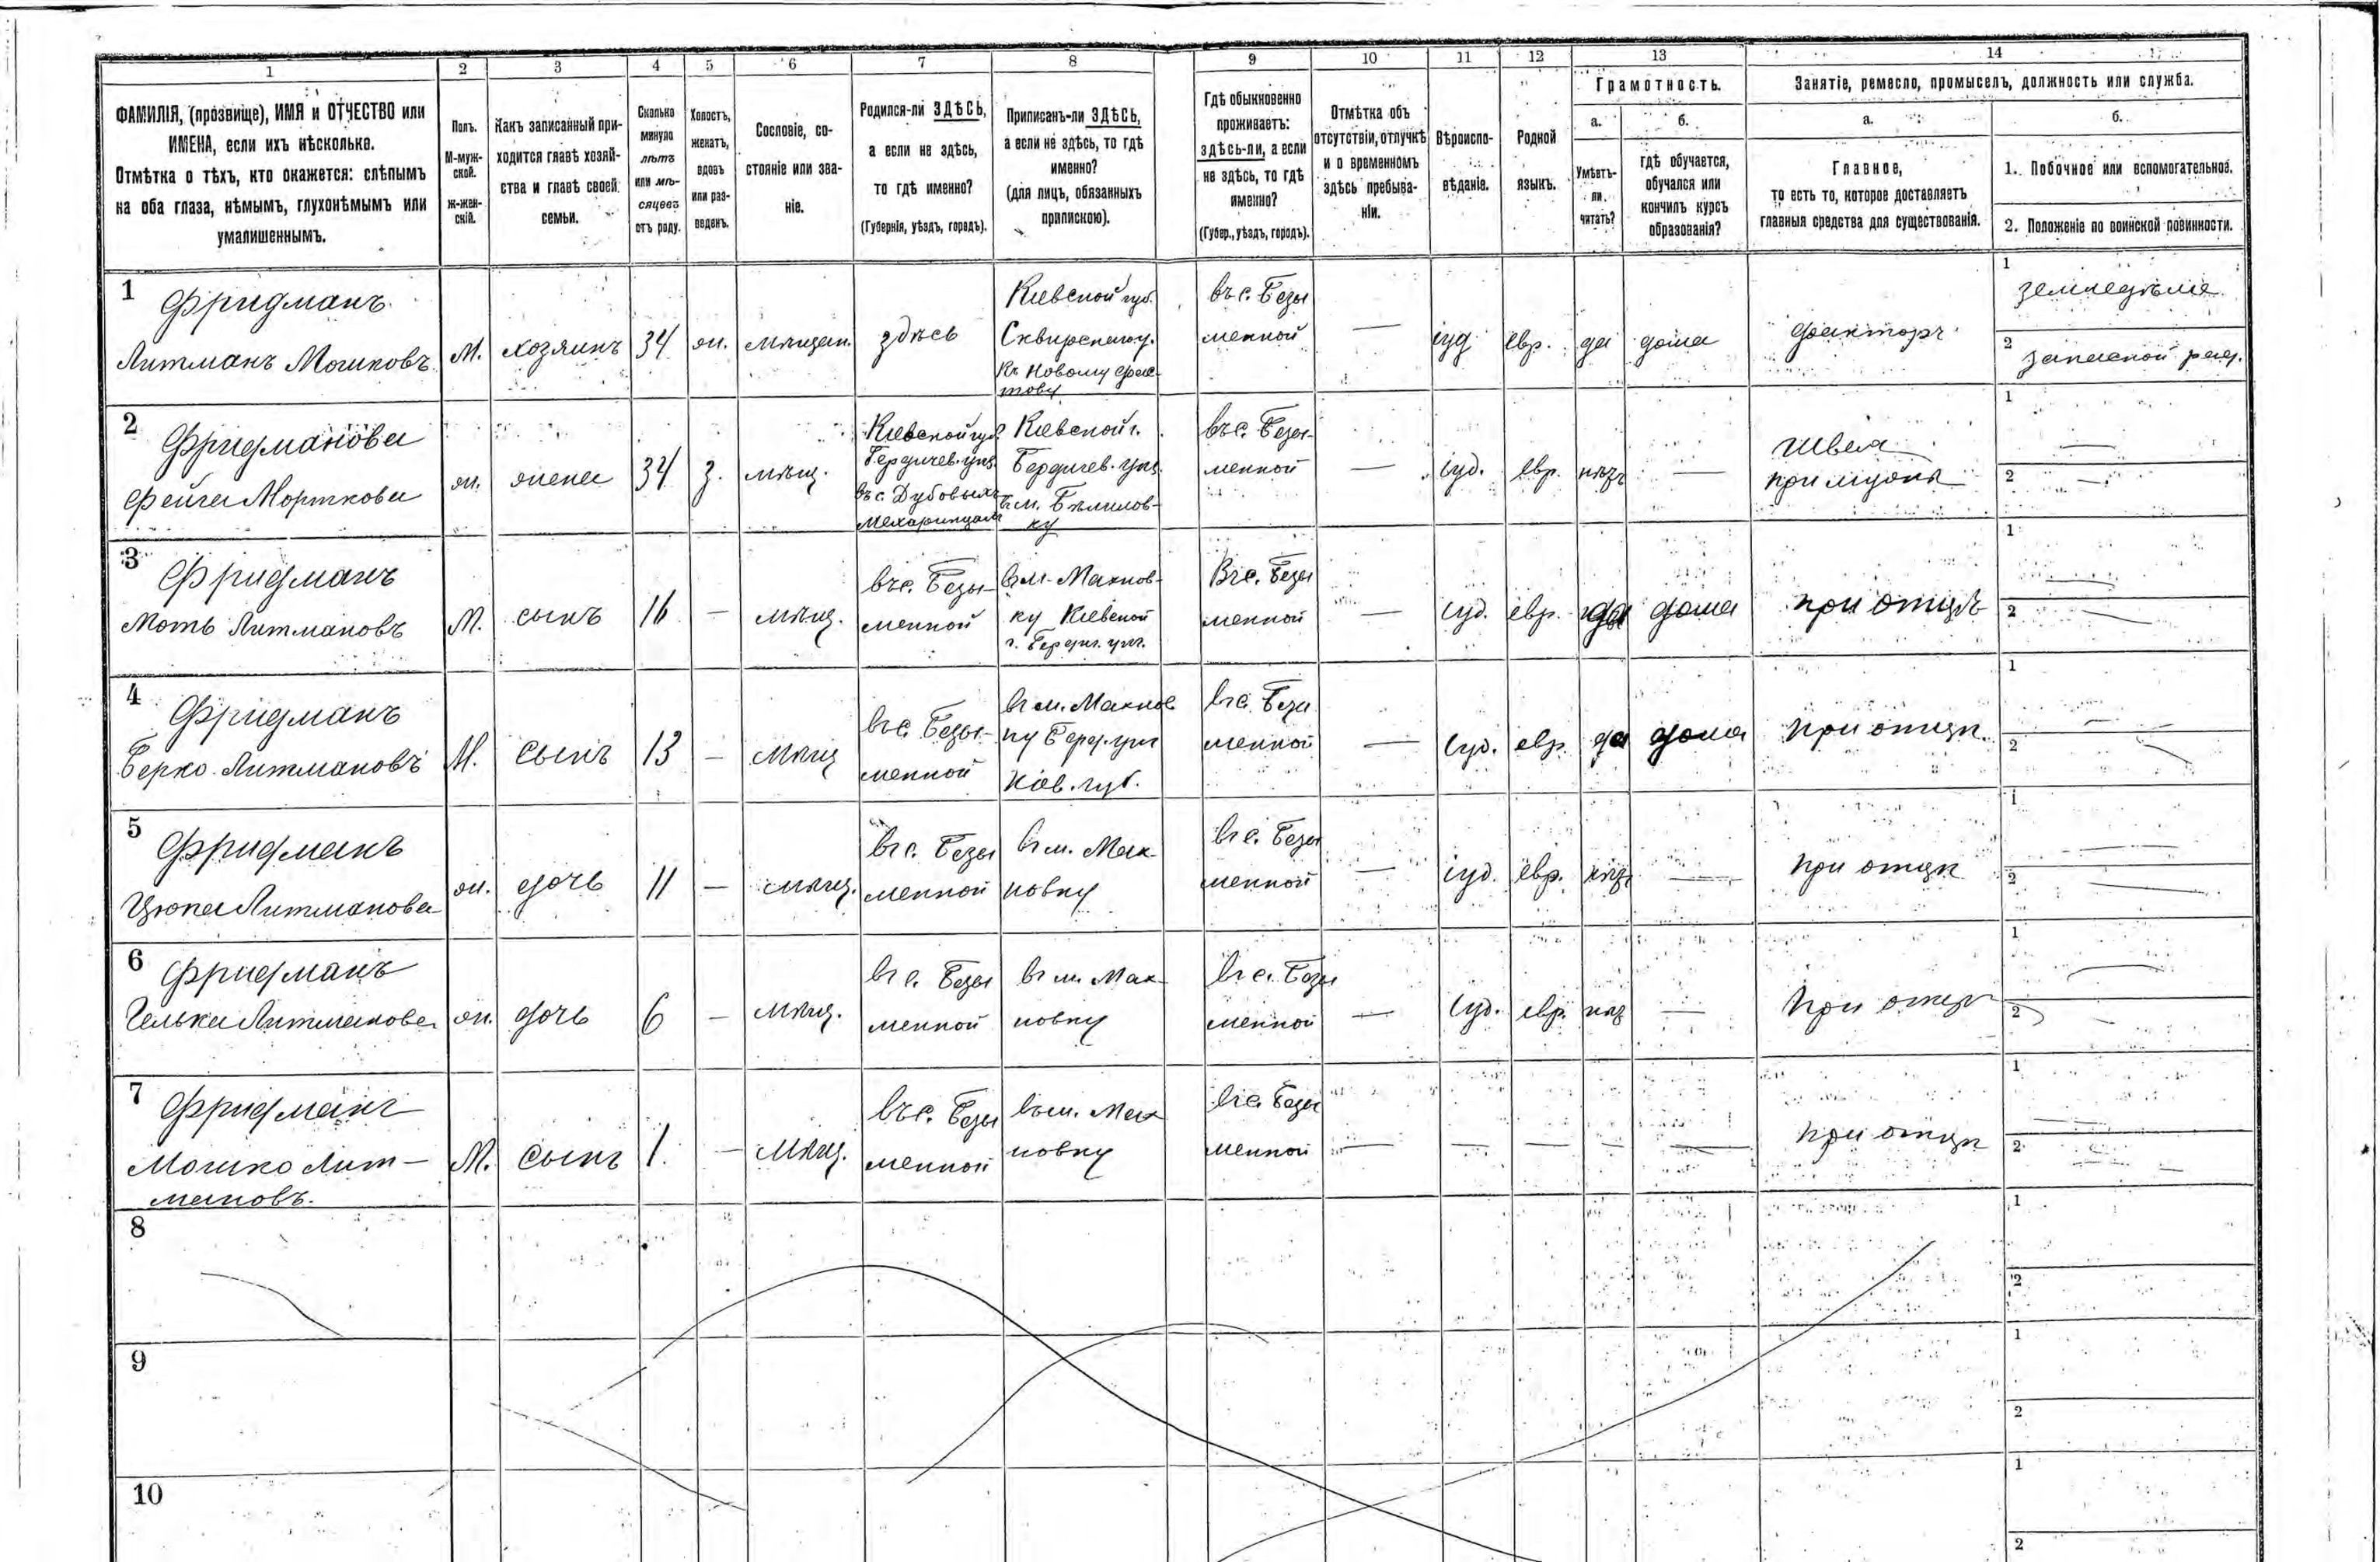 1 2 3 4 5 6 7 8 9 10 11 12 13 14
ФАМИЛІЯ, (прозвище), ИМЯ и ОТЧЕСТВО или
ИМЕНА, если ихъ нѣсколько.
Отмѣтка о тѣхъ, кто окажется: слѣпымъ
на оба глаза, нѣмымъ, глухонѣмымъ или
умалишеннымъ.
Полъ.
М-муж-
ской.
Ж-жен-
скій.
Какъ записанный при-
ходится главѣ хозяй-
ства и главѣ своей
семьи.
Сколько
минуло
лѣтъ
или мѣ-
сяцевъ
отъ роду.
Холостъ,
женатъ,
вдовъ
или раз-
веденъ.
Сословіе, со-
стояніе или зва-
ніе.
Родился-ли ЗДѢСЬ,
а если не здѣсь,
то гдѣ именно?
(Губернія, уѣздъ, городъ).
Приписанъ-ли ЗДѢСЬ,
а если не здѣсь, то гдѣ
именно?
(для лицъ, обязанныхъ
припискою).
Гдѣ обыкновенно
проживаетъ:
здѣсь-ли, а если
не здѣсь, то гдѣ
именно?
(Губер., уѣздъ, городъ).
Отмѣтка объ
отсутствіи, отлучкѣ
и о временномъ
здѣсь пребыва-
ніи.
Вѣроиспо-
вѣданіе.
Родной
языкъ.
Грамотность.
а.
Умѣетъ-
ли
читать?
б.
гдѣ обучается,
обучался или
кончилъ курсъ
образованія?
Занятіе, ремесло, промыселъ, должность или служба.
а.
Главное,
то есть то, которое доставляетъ
главныя средства для существованія.
б.
1. Побочное или вспомогательное.
2. Положеніе по воинской повинности.
1
Фридманъ
Литманъ Мошковъ
М.
хозяинъ
34
ж.
мѣщан.
здѣсь
Кіевской губ.
Сквирскаго у.
Къ Новому Фас-
тову
въ с. Безы
менной
—
іуд
евр.
да
дома
факторъ
1
земледѣліе
2
запасной ряд.
2
Фридманова
Фейга Мортковa
ж.
жена
34
з.
мѣщ.
Кіевской губ.
Бердичев. уѣз.
въ с. Дубовыхъ
Махаринцахъ
Кіевской г.
Бердичев. уѣз.
въ м. Бѣлилов-
ку
въ с. Безы-
менной
—
іуд.
евр.
нѣтъ
—
Швея
при мужѣ
1
—
2
3
Фридманъ
Моть Литмановъ
М.
сынъ
16
—
мѣщ.
въ с. Безы-
менной
въ м. Махнов-
ку Кіевской
г. Бердич. уѣз.
Въ с. Безы
менной
—
іуд.
евр.
да
дома
при отцѣ
1
—
2
—
4
Фридманъ
Берко Литмановъ
М.
Сынъ
13
—
мѣщ
въ с. Безы-
менной
въ м. Махнов
ку Берд. уѣз
Кіев. губ.
въ с. Безы
менной
—
іуд.
евр.
да
дома
при отцѣ.
1
—
2
—
5
Фридманъ
Цюпа Литманова
ж.
дочь
11
—
мѣщ.
въ с. Безы
менной
въ м. Мах-
новку
въ с. Безы
менной
—
іуд.
евр.
нѣтъ
—
при отцѣ
1
—
2
—
6
Фридманъ
Гелька Литманова
ж.
дочь
6
—
мѣщ.
въ с. Безы
менной
въ м. Мах
новку
въ с. Безы
менной
—
іуд.
евр.
нѣт
—
При отцѣ
1
—
2
7
Фридманъ
Мошко Лит-
мановъ.
М.
Сынъ
1.
—
мѣщ.
въ с. Безы
менной
въ м. Мах
новку
въ с. Безы
менной
—
—
—
—
—
при отцѣ
1
—
2
—
8
1
2
9
1
2
10
1
2